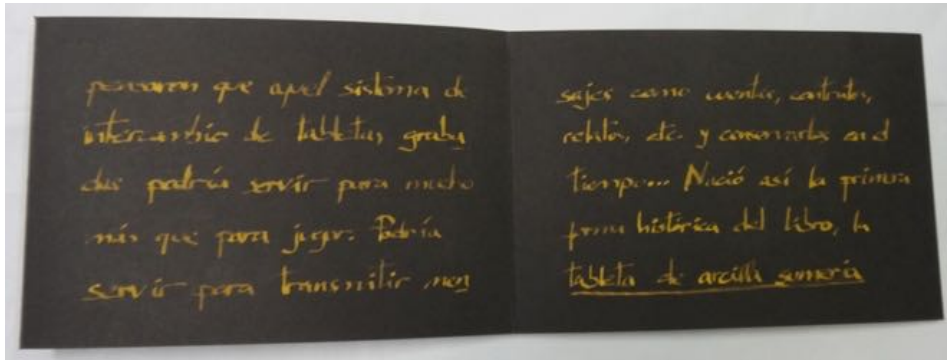 pensaron que aquel sistema de
intercambio de tabletas graba
das podría servir para mucho
más que para jugar. Podría
servir para transmitir men
sajes como cuentos, contratos,
relatos, etc. y conservarlos en el
tiempo... Nació así la primera
forma histórica del libro, la
tableta de arcilla sumeria